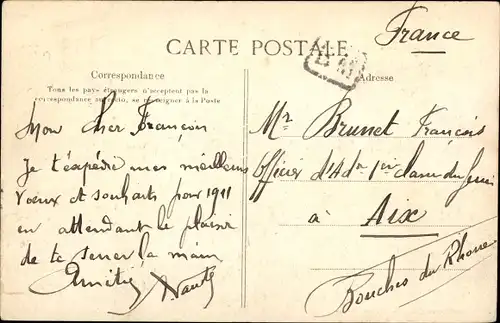 France
CARTE POSTALE
Correspondance
Tous les pays étrangers n'acceptent pas la
correspondance au recto, se renseigner à la Poste
Adresse
Mon cher François
Je t'expédie mes meilleurs
Voeux et souhaits pour 1911
en attendant le plaisir
de te serrer la main
Amitiés
Mr Brunet François
Officier d'Adon 1ère classe du Génie
à
Aix
Bouches du Rhone